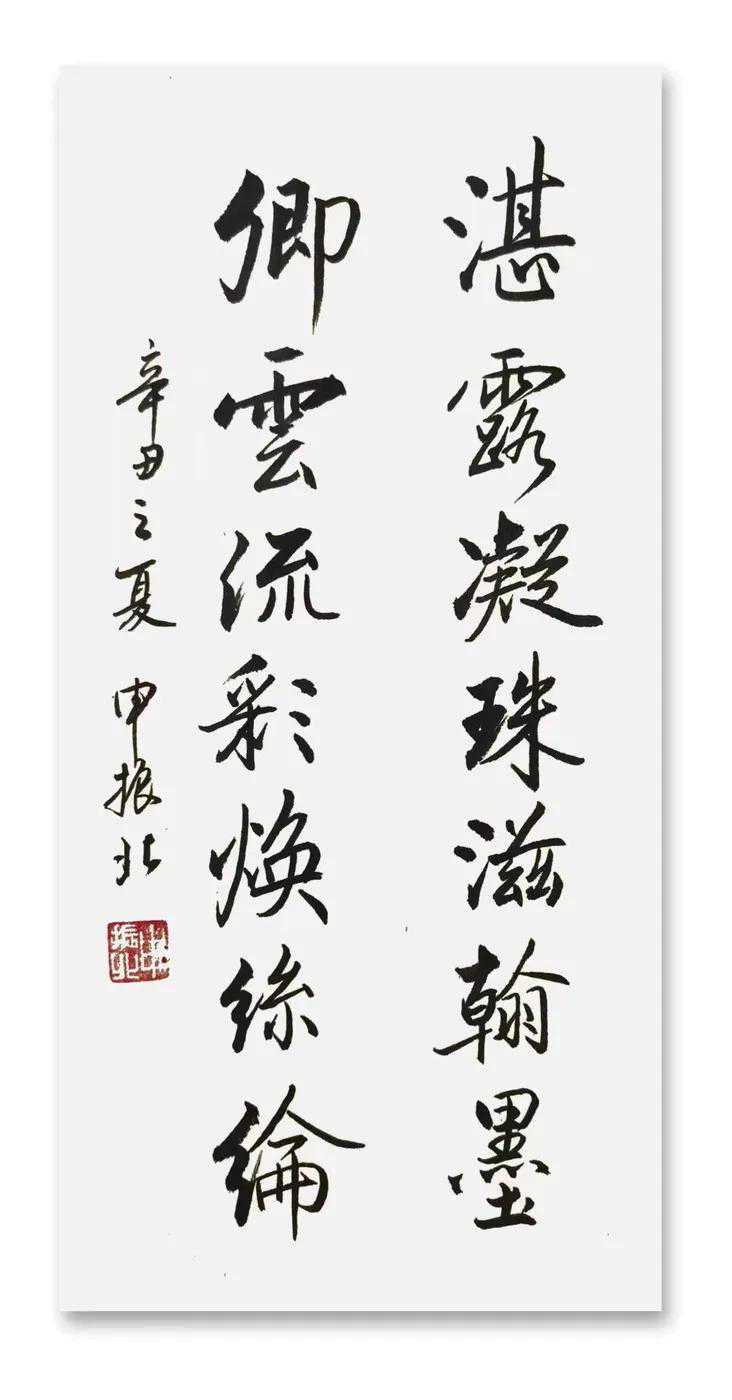 湛露凝珠滋翰墨
卿雲流彩焕絲綸
辛丑之夏 申振北
申振北